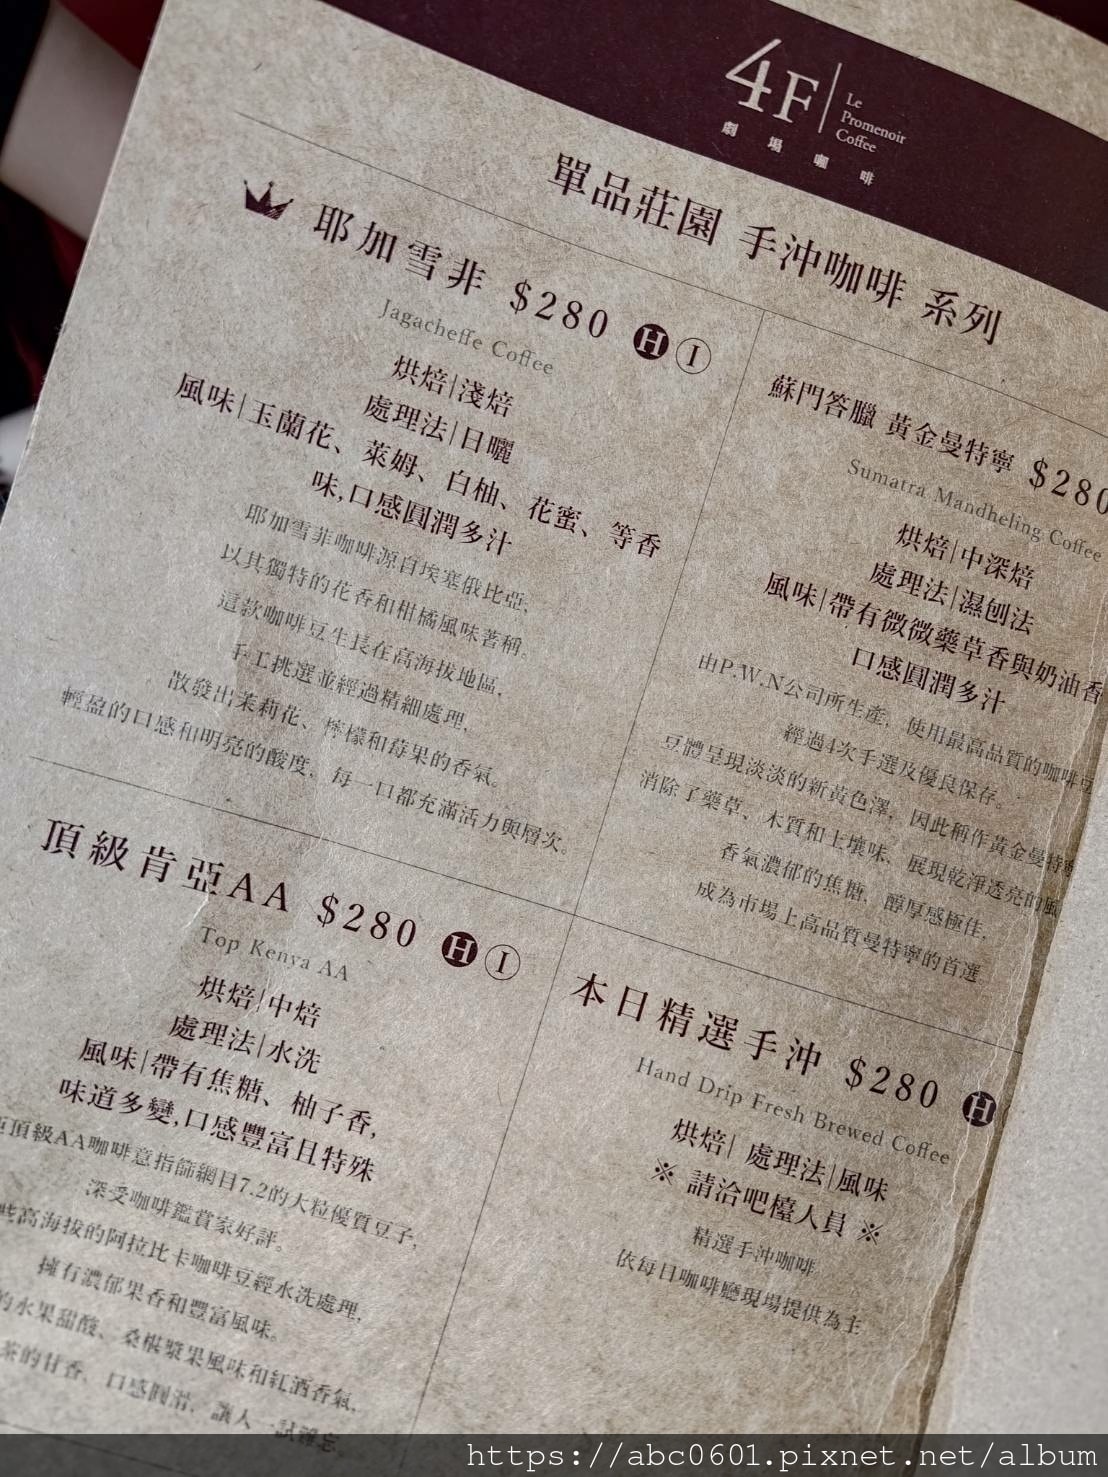 4F
Le
Promenoir
Coffee
劇場咖啡
單品莊園 手沖咖啡 系列
耶加雪非 $280 H I
Jagacheffe Coffee
烘焙|淺焙
處理法|日曬
風味|玉蘭花、萊姆、白柚、花蜜、等香
味,口感圓潤多汁
耶加雪菲咖啡源自埃塞俄比亞,
以其獨特的花香和柑橘風味著稱。
這款咖啡豆生長在高海拔地區,
手工挑選並經過精細處理,
散發出茉莉花、檸檬和莓果的香氣。
輕盈的口感和明亮的酸度, 每一口都充滿活力與層次。
蘇門答臘 黃金曼特寧 $280
Sumatra Mandheling Coffee
烘焙|中深焙
處理法|濕刨法
風味|帶有微微藥草香與奶油香
口感圓潤多汁
由P.W.N公司所生產, 使用最高品質的咖啡豆
經過4次手選及優良保存。
豆體呈現淡淡的新黃色澤, 因此稱作黃金曼特寧
消除了藥草、木質和土壤味, 展現乾淨透亮的風
香氣濃郁的焦糖, 醇厚感極佳,
成為市場上高品質曼特寧的首選
頂級肯亞AA $280 H I
Top Kenya AA
烘焙|中焙
處理法|水洗
風味|帶有焦糖、柚子香,
味道多變,口感豐富且特殊
頂級AA咖啡意指篩網目7.2的大粒優質豆子,
深受咖啡鑑賞家好評。
些高海拔的阿拉比卡咖啡豆經水洗處理,
擁有濃郁果香和豐富風味。
的水果甜酸、桑椹漿果風味和紅酒香氣,
茶的甘香, 口感圓滑, 讓人一試難忘。
本日精選手沖 $280 H
Hand Drip Fresh Brewed Coffee
烘焙| 處理法|風味
※ 請洽吧檯人員 ※
精選手沖咖啡
依每日咖啡廳現場提供為主
https://abc0601.pixnet.net/album